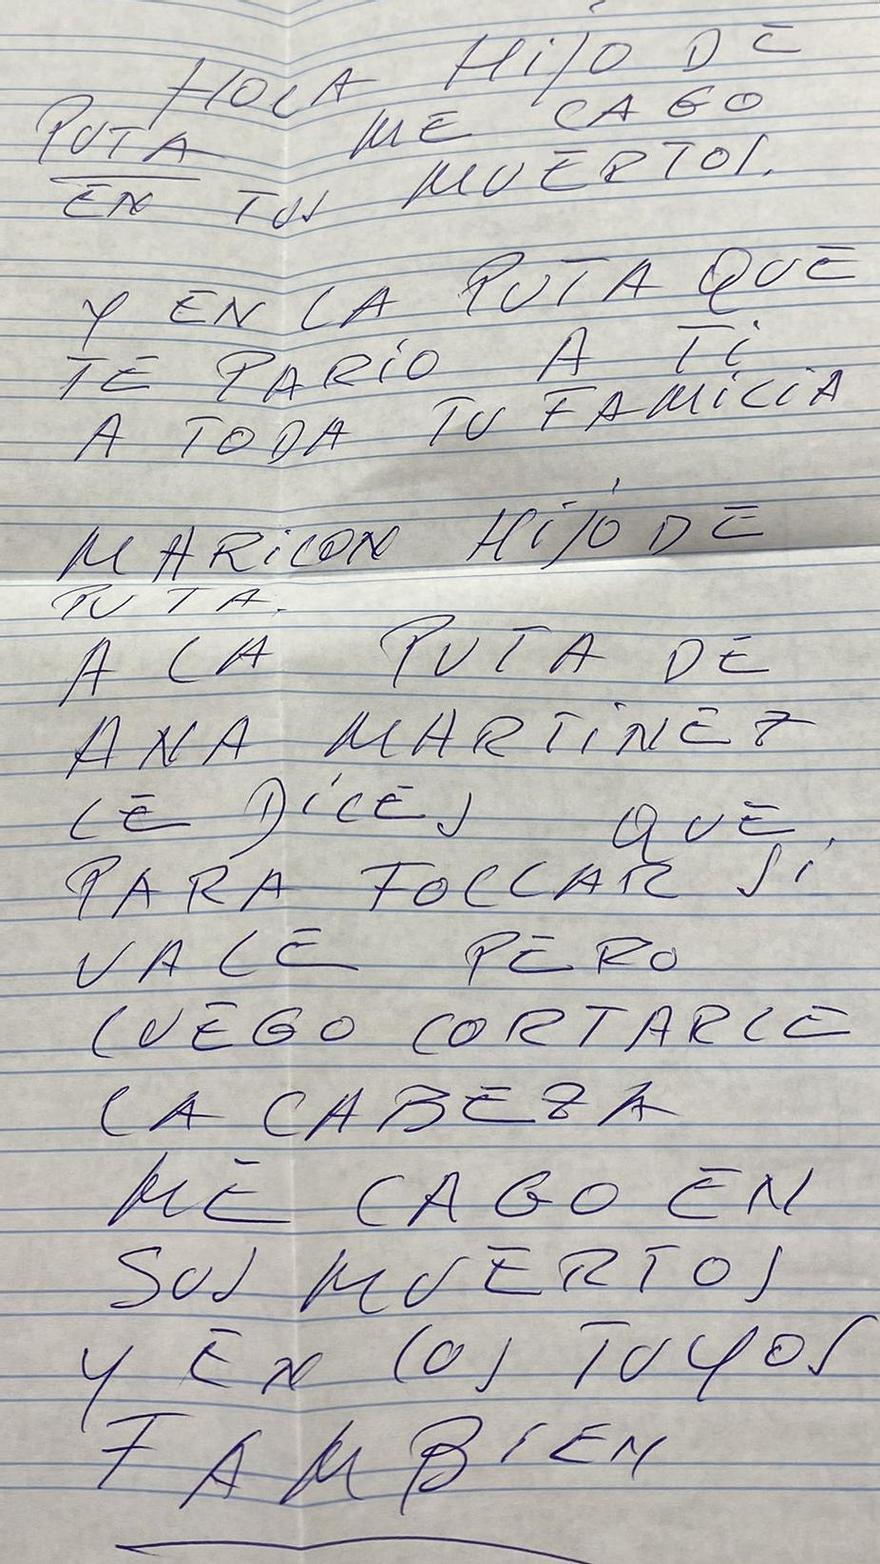 HOLA HIJO DE
PUTA ME CAGO
EN TUS MUERTOS.
Y EN LA PUTA QUE
TE PARIO A TI
A TODA TU FAMILIA
MARICON HIJO DE
PUTA.
A LA PUTA DE
ANA MARTINEZ
LE DICES QUE
PARA FOLLAR SI
VALE PERO
LUEGO CORTARLE
LA CABEZA
ME CAGO EN
SUS MUERTOS
Y EN LOS TUYOS
TAMBIEN